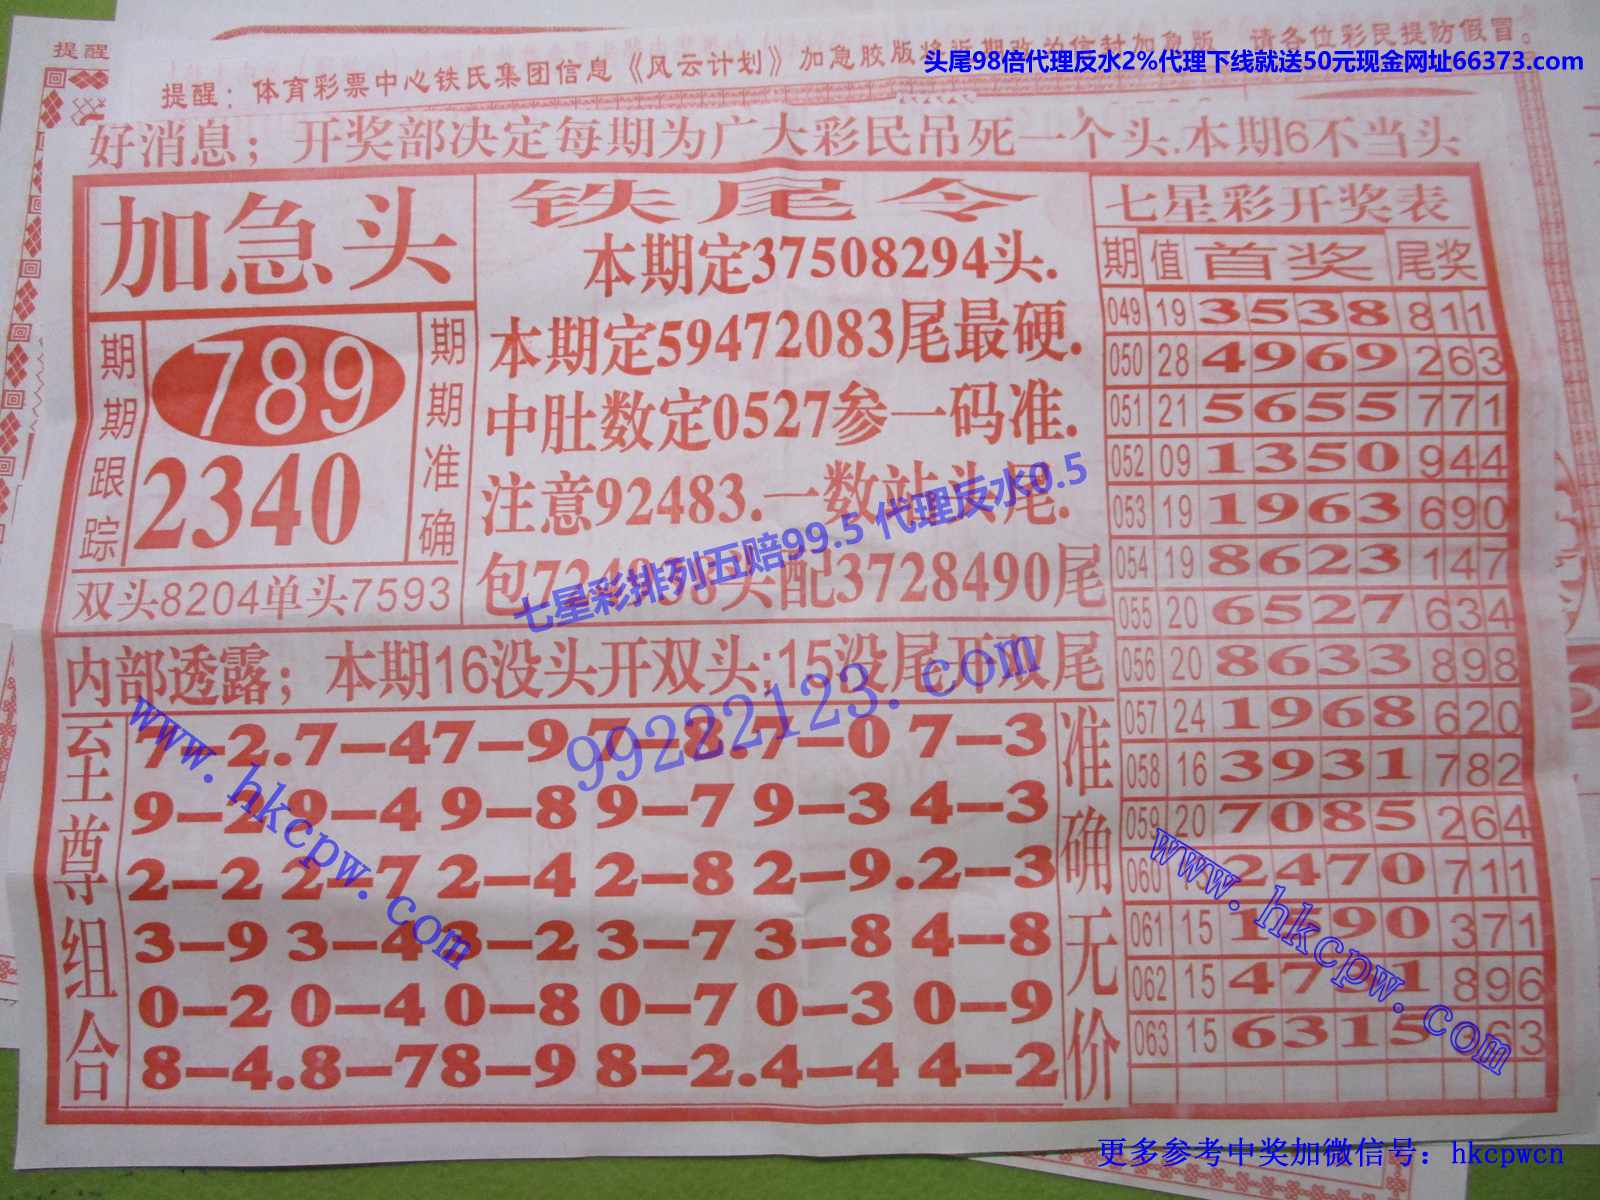 头尾98倍代理反水2%代理下线就送50元现金网址66373.com
提醒
提醒：体育彩票中心铁氏集团信息《风云计划》加急胶版 请各位彩民提防假冒。
好消息；开奖部决定每期为广大彩民吊死一个头.本期6不当头
加急头
期期跟踪
789
2340
期期准确
双头8204单头7593
铁尾令
本期定37508294头.
本期定59472083尾最硬.
中肚数定0527参一码准.
注意92483.一数站头尾.
包 头配3728490尾
七星彩排列五赔99.5 代理反水0.5
内部透露；本期16没头开双头;15没尾开双尾
99222123.com
至尊组合
7-2.7-47-9 7-8.7-0 7-3
9-2 9-4 9-8 9-7 9-3 4-3
2-2 2-7 2-4 2-8 2-9.2-3
3-9 3-4 3-2 3-7 3-8 4-8
0-2 0-4 0-8 0-7 0-3 0-9
8-4.8-78-9 8-2.4-4 4-2
准确无价
www.hkcpw.com
七星彩开奖表
期 值 首奖 尾奖
049 19 3538 811
050 28 4969 263
051 21 5655 771
052 09 1350 944
053 19 1963 690
054 19 8623 147
055 20 6527 634
056 20 8633 898
057 24 1968 620
058 16 3931 782
059 20 7085 264
060 2470 711
061 15 371
062 15 896
063 15 6315
www.hkcpw.com
更多参考中奖加微信号：hkcpwcn